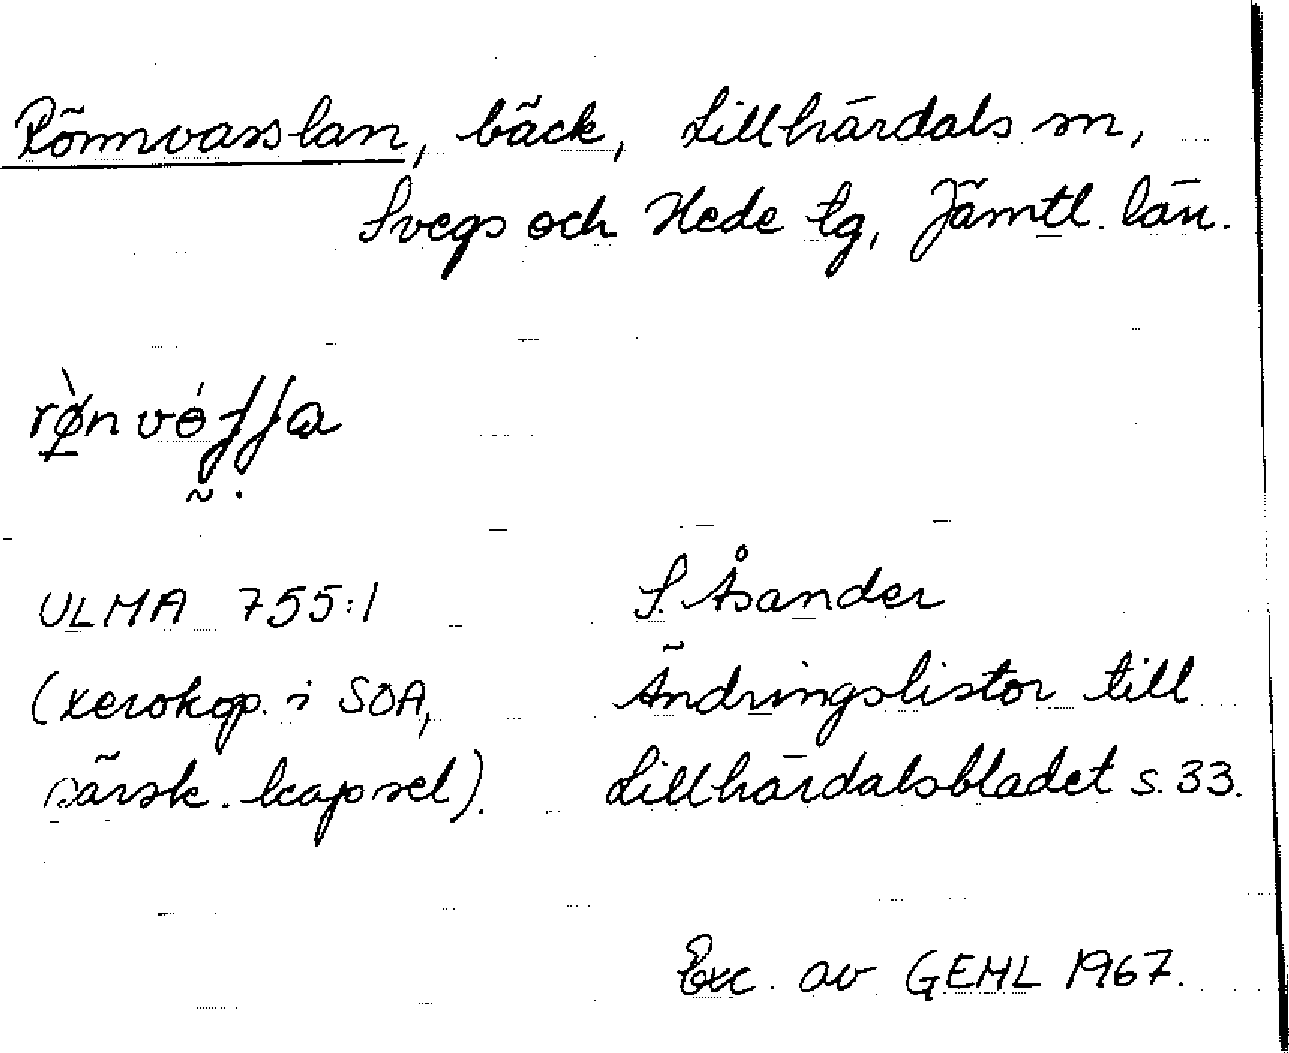 Rönnvasslan, bäck, Lillhärdals sn,
Svegs och Hede tg, Jämtl. län.
ULMA 755:1
S. Åsander
(xerokop. i SOA,
Ändringslistor till
särsk. kapsel).
Lillhärdalsbladet s. 33.
Exc. av GEHL 1967.